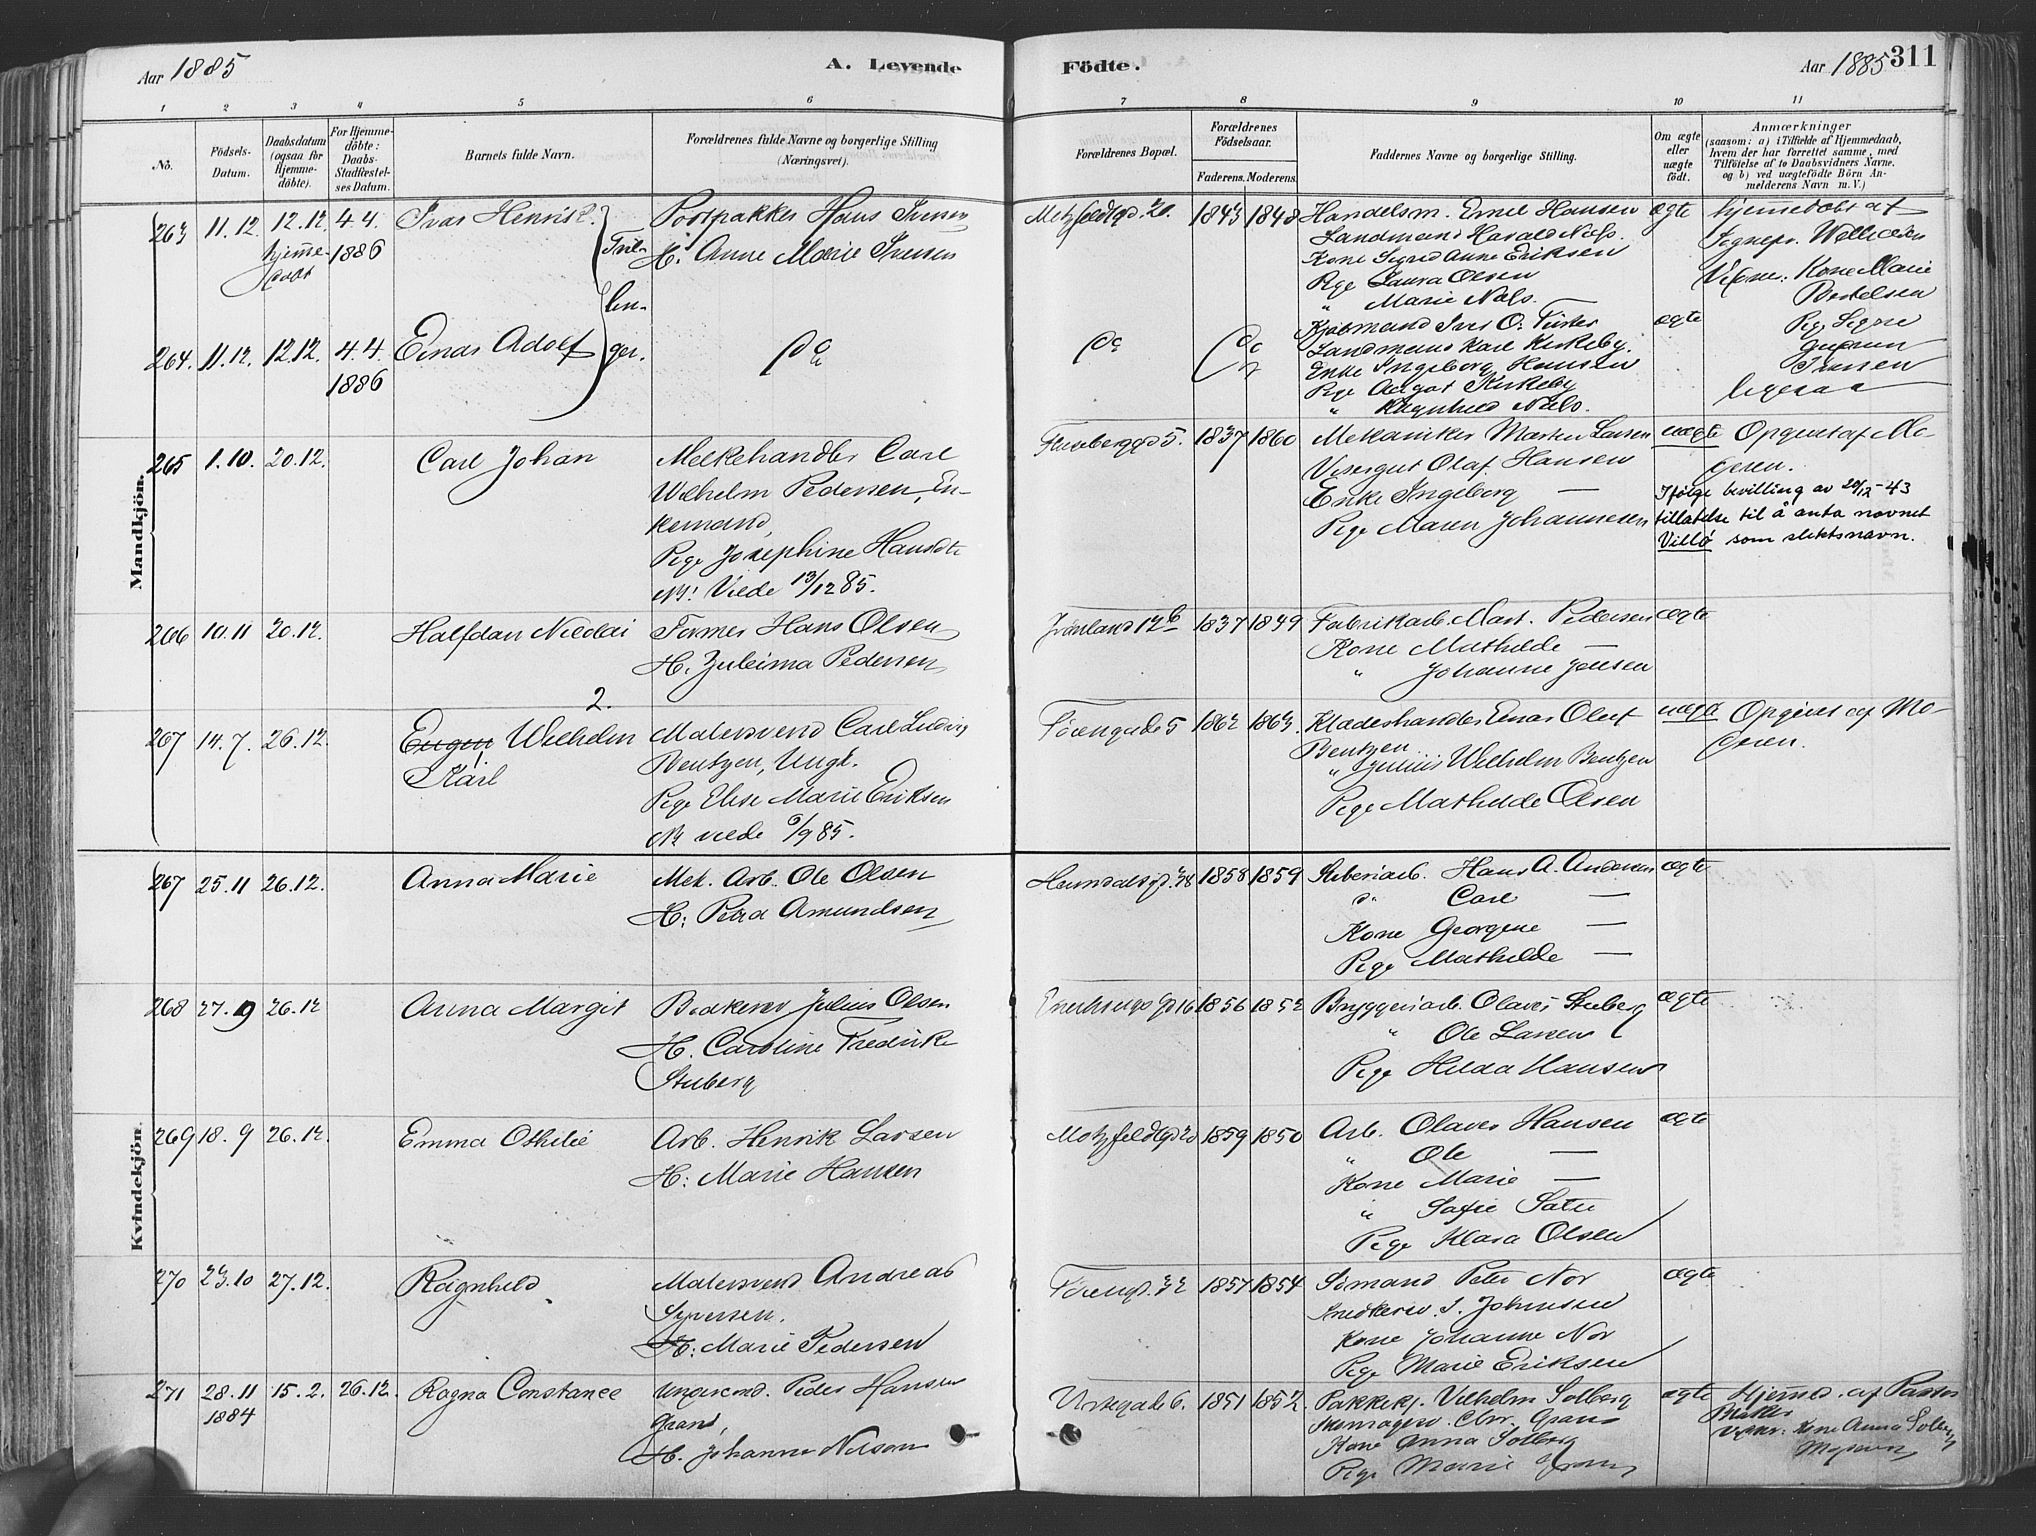 Aar 1885
A. Levende
Födte.
Aar 1885
311
1 2 3 4 5 6 7 8 9 10 11
No.
Födsels-
Datum.
Daabsdatum
(ogsaa for
Hjemme-
döbte).
For Hjemme-
döbte:
Daabs-
Stadfæstel-
ses Datum.
Barnets fulde Navn.
Forældrenes fulde Navne og borgerlige Stilling
(Næringsvei).
Forældrenes Bopæl.
Forældrenes
Födselsaar.
Faderens. Moderens.
Faddernes Navne og borgerlige Stilling.
Om ægte
eller
uægte
födt.
Anmærkninger
(saasom: a) i Tilfælde af Hjemmedaab,
hvem der har forrettet samme, med
Tilföielse af to Daabsvidners Navne,
og b) ved uægtefödte Börn An-
melderens Navn m. V.)
Mandkjön.
263 11.12. 12.12. 4.4. Ivar Henrik.
hjemme- 1886
döbt
Tvil-
lin-
ger.
Postpakker Hans Iversen
H. Anne Marie Iversen
Motzfeldtgd. 20. 1843 1848
Handelsm. Emil Hansen
Landmand Harald Næss.
Kone Sigrid Anne Eriksen
Pige Laura Olsen
" Marie Næss.
ægte
hjemmedöbt af
Kone Marie
Bertelsen
Pige Signe
Gudrun
Iversen
264. 11.12. 12.12. 4.4. Einar Adolf
1886
Kjöbmand Iver O.
Landmand Karl Kirkeby.
Enke Ingeborg Hansen
Pige Aagot Kirkeby
" Ragnhild Næss.
ægte
ligesaa
265 1.10. 20.12. Carl Johan
Melkehandler Carl
Wilhelm Pedersen, En-
kemand,
Pige Josephine
NB! Viede 13/12 85.
5. 1837 1860
Mekaniker Morten Larsen
Visergut Olaf Hansen
Enke Ingeborg —
Pige Maren Johannesen
uægte
Opgivet af Mo-
deren.
Ifølge bevilling av 20/12-43
tillatelse til å anta navnet
Villø som slektsnavn.
266 10.11 20.12. Halfdan Nicolai
Former Hans Olsen
H. Zuleima Pedersen
Grönland 12b 1837 1849
Fabrikarb. Mart. Pedersen
Kone Mathilde —
" Johanne Jensen
ægte
267 14.7. 26.12.
2.
Eugen Wilhelm
1.
Karl
Malersvend Carl Ludvig
Bentzen, Ungk.
Pige Elise Marie Eriksen
NB viede 6/9 85.
5 1862 1863.
Klædeshandler Einar Oluf
Bentzen
" Julius Wilhelm Bentzen
Pige Mathilde Olsen
uægte
Opgivet af Mo-
deren.
Kvindekjön.
267 25.11 26.12. Anna Marie
Mek. Arb. Ole Olsen
H: Petra Amundsen
1858 1859
Hans A. Andersen
" Carl —
Kone Georgine —
Pige Mathilde —
ægte
268 27.9 26.12 Anna Margit
Bödkersv Julius Olsen
H. Caroline Fredrikke
Stuberg
16 1856 1852
Bryggeriarb. Olaves Stuberg
" Ole Larsen
Pige Hilda Hansen
ægte
269 18.9 26.12. Emma Othilie
Arb. Henrik Larsen
H: Marie Hansen
Motzfeldtgd 20 1859 1850
Arb. Olaves Hansen
" Ole —
Kone Marie —
" Sofie
Pige Klara Olsen
ægte
270 23.10 27.12. Ragnhild
Malersvend Andreas
Syversen.
H: Marie Pedersen
1857 1854
Sömand Peter Nor
Snedkersv. S. Johnsen
Kone Johanne Nor
Pige Marie Eriksen
ægte
271 28.11 15.2. 26.12. Ragna Constance
1884
Peder Hansen
Gran,
H. Johanne Nilsen
6. 1851 1852.
Pakkekj. Vilhelm Solberg
Skomagersv. Chr. Gran
Kone Anna Solberg
Pige Marie Gran
ægte
Hjemmed. af Pastor
Kone Anna Solberg